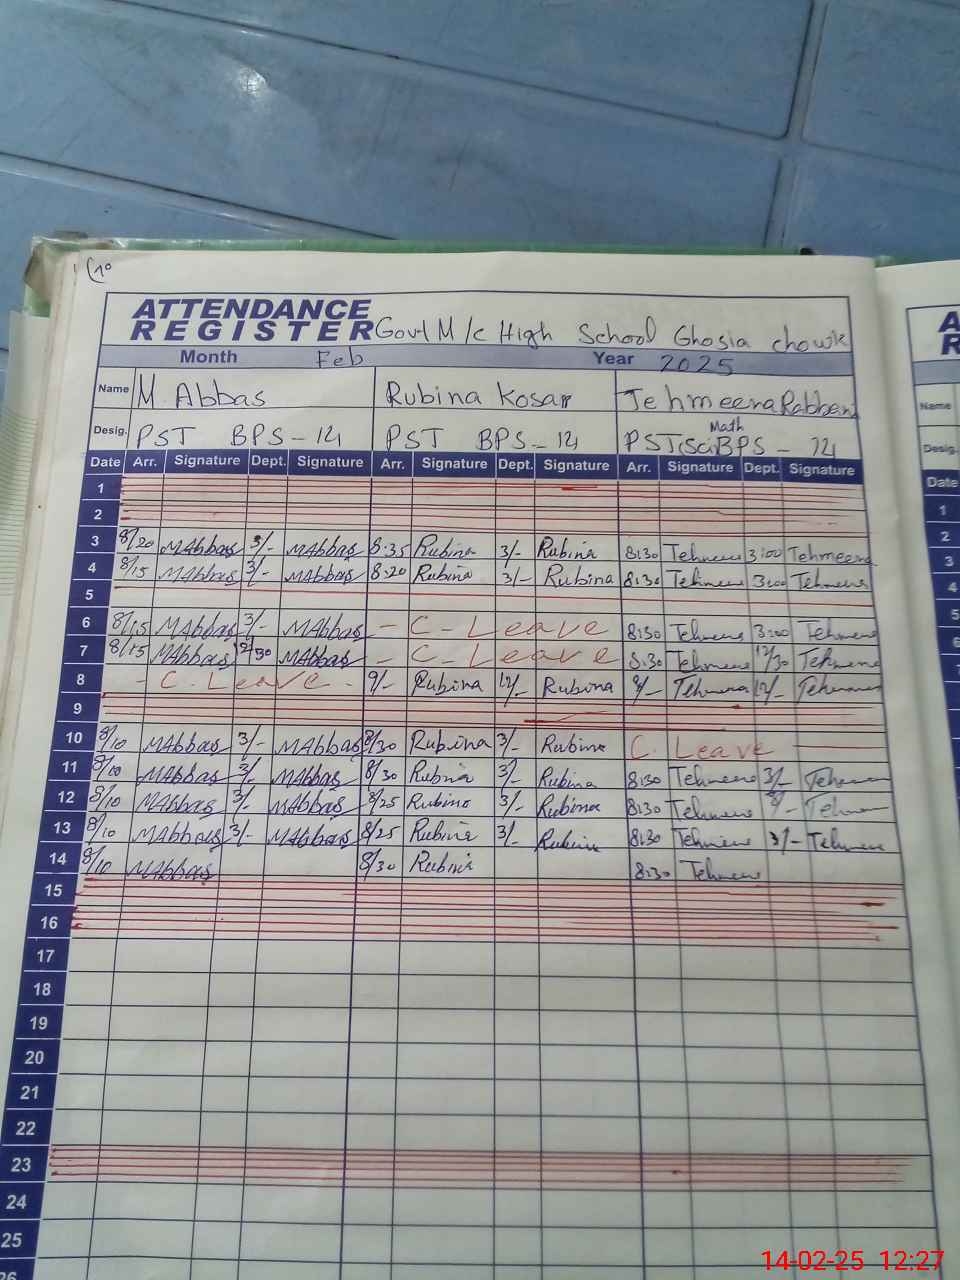 (10
ATTENDANCE
REGISTER Govt M/c High School Ghosia chowk
Month Feb Year 2025
Name M. Abbas Rubina Kosar Tehmeena Rabbani
Math
Desig. PST BPS-14 PST BPS-14 PST(Sci BPS-14
Date Arr. Signature Dept. Signature Arr. Signature Dept. Signature Arr. Signature Dept. Signature
1
2
3 8/20 MAbbas 3/- MAbbas 8:35 Rubina 3/- Rubina 8:30 Tehmeena 3:00 Tehmeena
4 8/15 MAbbas 3/- MAbbas 8:20 Rubina 3/- Rubina 8:30 Tehmeena 3:00 Tehmeena
5
6 8/15 MAbbas 3/- MAbbas - C - Leave 8:30 Tehmeena 3:00 Tehmeena
7 8/15 MAbbas 12/30 MAbbas - C - Leave 8:30 Tehmeena 12/30 Tehmeena
8 - C. Leave - 9/- Rubina 12/- Rubina 9/- Tehmeena 12/- Tehmeena
9
10 8/10 MAbbas 3/- MAbbas 8/30 Rubina 3/- Rubina C. Leave
11 8/10 MAbbas 3/- MAbbas 8/30 Rubina 3/- Rubina 8:30 Tehmeena 3/- Tehmeena
12 8/10 MAbbas 3/- MAbbas 8/25 Rubina 3/- Rubina 8:30 Tehmeena 3/- Tehmeena
13 8/10 MAbbas 3/- MAbbas 8/25 Rubina 3/- Rubina 8:30 Tehmeena 3/- Tehmeena
14 8/10 MAbbas 8/30 Rubina 8:30 Tehmeena
15
16
17
18
19
20
21
22
23
24
25
26
A
R
Name
Desig.
Date
1
2
3
4
5
6
7
14-02-25 12:27